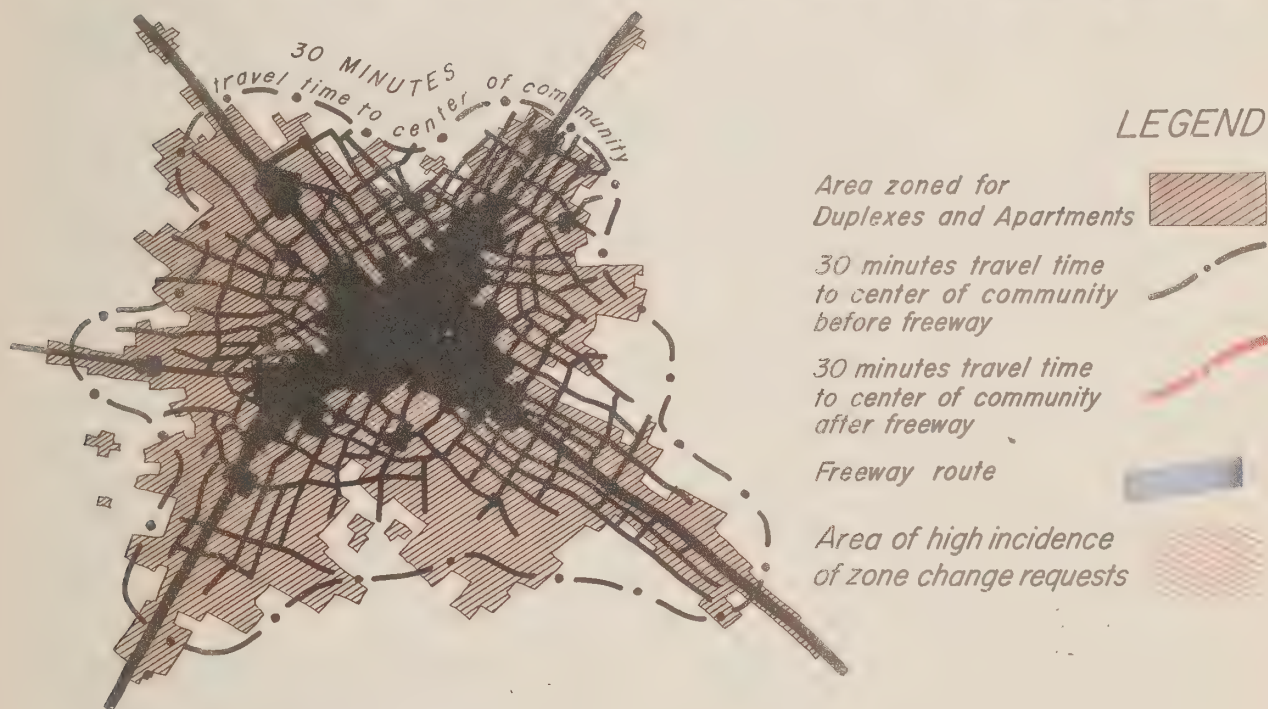 30 MINUTES
travel time to center of community
LEGEND
Area zoned for
Duplexes and Apartments
30 minutes travel time
to center of community
before freeway
30 minutes travel time
to center of community
after freeway
Freeway route
Area of high incidence
of zone change requests